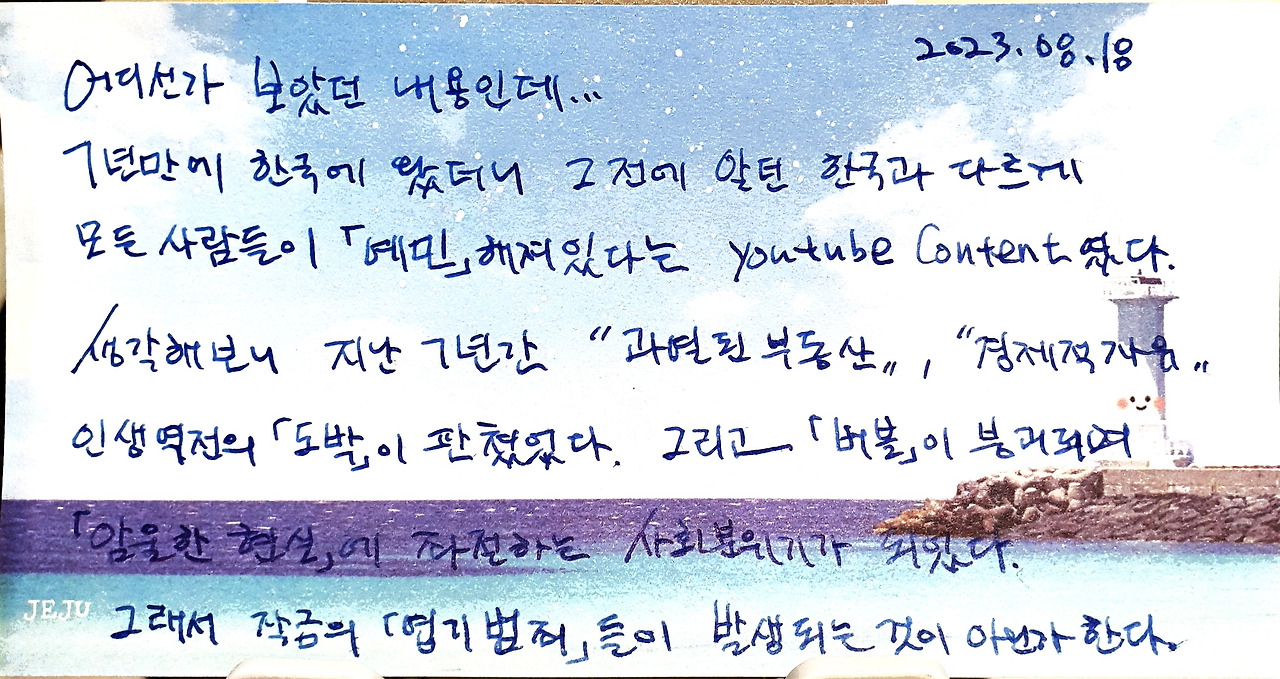 2023.08.18
어디선가 보았던 내용인데...
7년만에 한국에 왔더니 그 전에 알던 한국과 다르게
모든 사람들이 「예민」해져있다는 youtube Content였다.
생각해보니 지난 7년간 "과열된 부동산", "경제적자유"
인생역전의 「도박」이 판쳤었다. 그리고 「버블」이 붕괴되며
「암울한 현실」에 좌절하는 사회분위기가 되었다.
JEJU
그래서 작금의 「엽기범죄」들이 발생되는 것이 아닌가 한다.